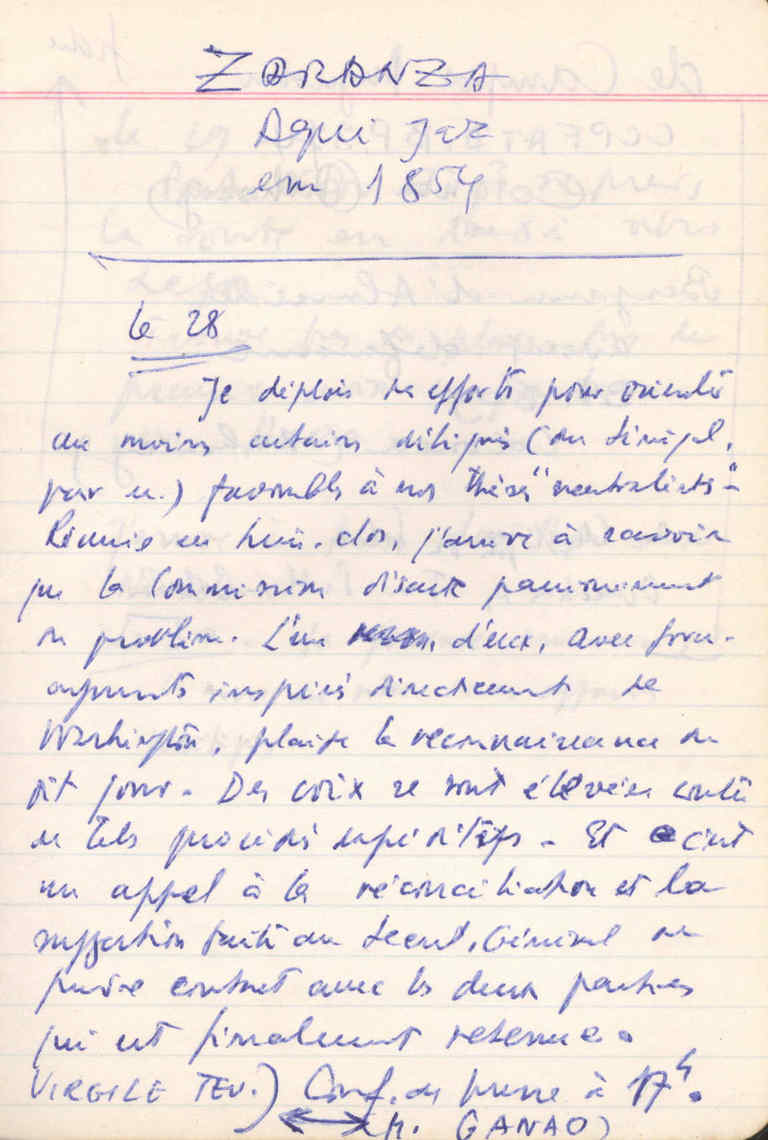 ZARANZA
Aqui Jaz
em 1854
le 28
Je déploie des efforts pour orienter
au moins certains délégués (du Sénégal,
par ex.) favorables à nos thèses "neutralistes"-
Réunis en huis-clos, j'arrive à savoir
que la Commission discute passionnément
du problème. L'un d'eux, avec force
arguments inspirés directement de
Washington, plaide la reconnaissance du
fit jour. Des voix se sont élevées contre
de tels procédés expéditifs - Et c'est
un appel à la réconciliation et la
suggestion faite au Secret. Général de
prendre contact avec les deux parties
qui est finalement retenue.
VIRGILE TEV.) Conf. de presse à 17h.
(M. GANAO)